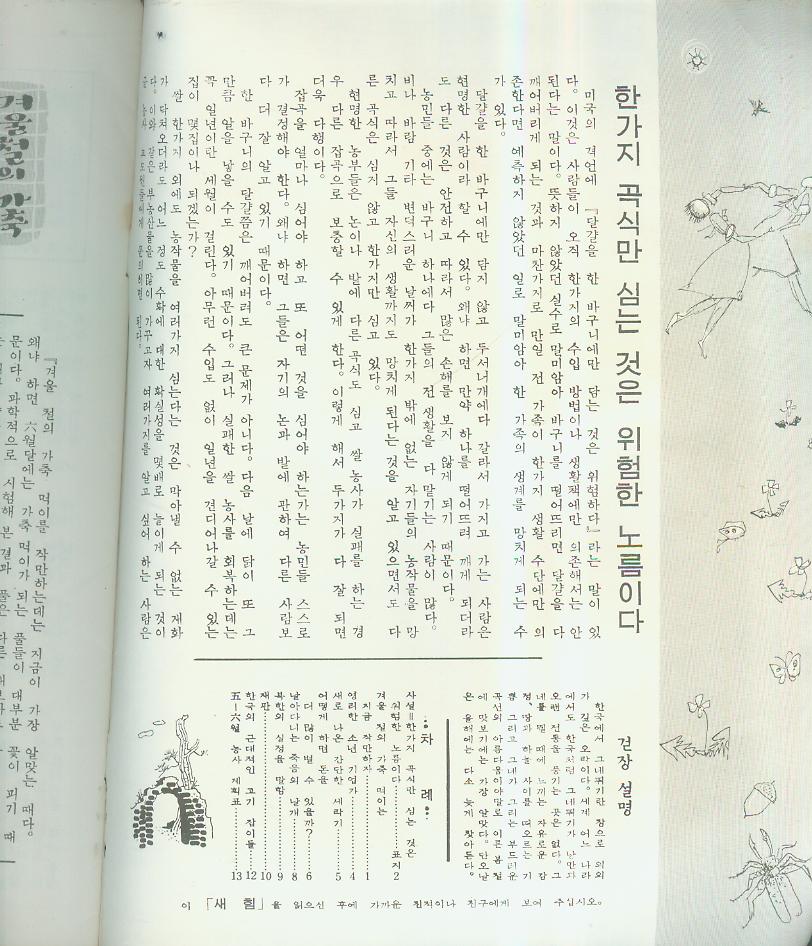 한가지 곡식만 심는 것은 위험한 노름이다
미국의 격언에 『달걀을 한 바구니에만 담는 것은 위험하다』라는 말이 있
다. 이것은 사람들이 오직 한가지의 수입 방법이나 생활책에만 의존해서는 안
된다는 말이다. 뜻하지 않았던 실수로 말미암아 바구니를 떨어뜨리면 달걀을 다
깨어버리게 되는 것과 마찬가지로 만일 전 가족이 한가지 생활 수단에만 의
존한다면 예측하지 않았던 일로 말미암아 한 가족의 생계를 망치게 되는 수
가 있다.
달걀을 한 바구니에만 담지 않고 두서너개에다 갈라서 가지고 가는 사람은
현명한 사람이라 할 수 있다. 왜냐 하면 만약 하나를 떨어뜨려 깨게 되더라
도 다른 것은 안전하고 따라서 많은 손해를 보지 않게 되기 때문이다.
농민들 중에는 바구니 하나에다 그들의 전 생활을 다 맡기는 사람이 많다.
비나 바람 기타 변덕스러운 날씨가 한가지 밖에 없는 자기들의 농작물을 망
치고 따라서 그들 자신의 생활까지도 망치게 된다는 것을 알고 있으면서도 다
른 곡식은 심지 않고 한가지만 심고 있다.
현명한 농부들은 논이나 밭에 다른 곡식도 심고 쌀 농사가 실패를 하는 경
우 다른 잡곡으로 보충할 수 있게 한다. 이렇게 해서 두가지가 다 잘 되면
더욱 다행이다.
잡곡을 얼마나 심어야 하고 또 어떤 것을 심어야 하는가는 농민들 스스로
가 결정해야 한다. 왜냐 하면 그들은 자기의 논과 밭에 관하여 다른 사람보
다 더 잘 알고 있기 때문이다.
한 바구니의 달걀쯤은 깨어버려도 큰 문제가 아니다. 다음 날에 닭이 또 그
만큼 알을 낳을 수도 있기 때문이다. 그러나 실패한 쌀 농사를 회복하는데는
꼭 일년이란 세월이 걸린다. 아무런 수입도 없이 일년을 견디어나갈 수 있는
집이 몇집이나 되겠는가?
쌀 한가지 외에도 농작물을 여러가지 심는다는 것은 막아낼 수 없는 재화
가 닥쳐오더라도 어느 정도 수확에 대한 확실성을 몇배로 높이게 되는 것이
다. 이와 같은 부농산물을 많이 가꾸고자 여러가지를 알고 싶어 하는 사람은
농사 교도원들에게 문의하면 된다.
겉장 설명
한국에서 그네뛰기란 참으로 의의
가 깊은 오락이다. 세계 어느 나라
에서도 한국처럼 그네뛰기가 낭만과
오랜 전통을 풍기는 곳은 없다. 그
네를 뛸 때에 느끼는 자유로운 감
정, 땅과 하늘 사이를 떠오르는 기
쁨 그리고 그네가 그리는 부드러운
곡선의 아름다움이야말로 이른 봄철
에 맛보기에는 가장 알맞다. 단오날
은 올해에는 다소 늦게 찾아든다.
…차 례…
사설=한가지 곡식만 심는 것은
위험한 노름이다……표지 2
겨울 철의 가축 먹이는
지금 작만하자…… 1
영리한 소년 기업가…… 4
새로 나온 간단한 세탁기…… 5
어떻게 하면 돈을
더 많이 벌 수 있을까?…… 6
날아다니는 죽음의 날개…… 8
북한의 실정을 말함…… 9
재판…… 10
한국의 근대적인 고기 잡이들…… 12
五-六월 농사 계획표…… 13
이 「새 힘」을 읽으신 후에 가까운 친척이나 친구에게 보여 주십시오.
겨울철의 가축
『겨울 철의 가축 먹이를 작만하는데는 지금이 가장 알맞는 때다.
왜냐 하면 六월달에는 가축 먹이가 되는 풀들이 대부분 꽃이 피기 때
문이다. 과학적으로 시험해 본 결과 풀은